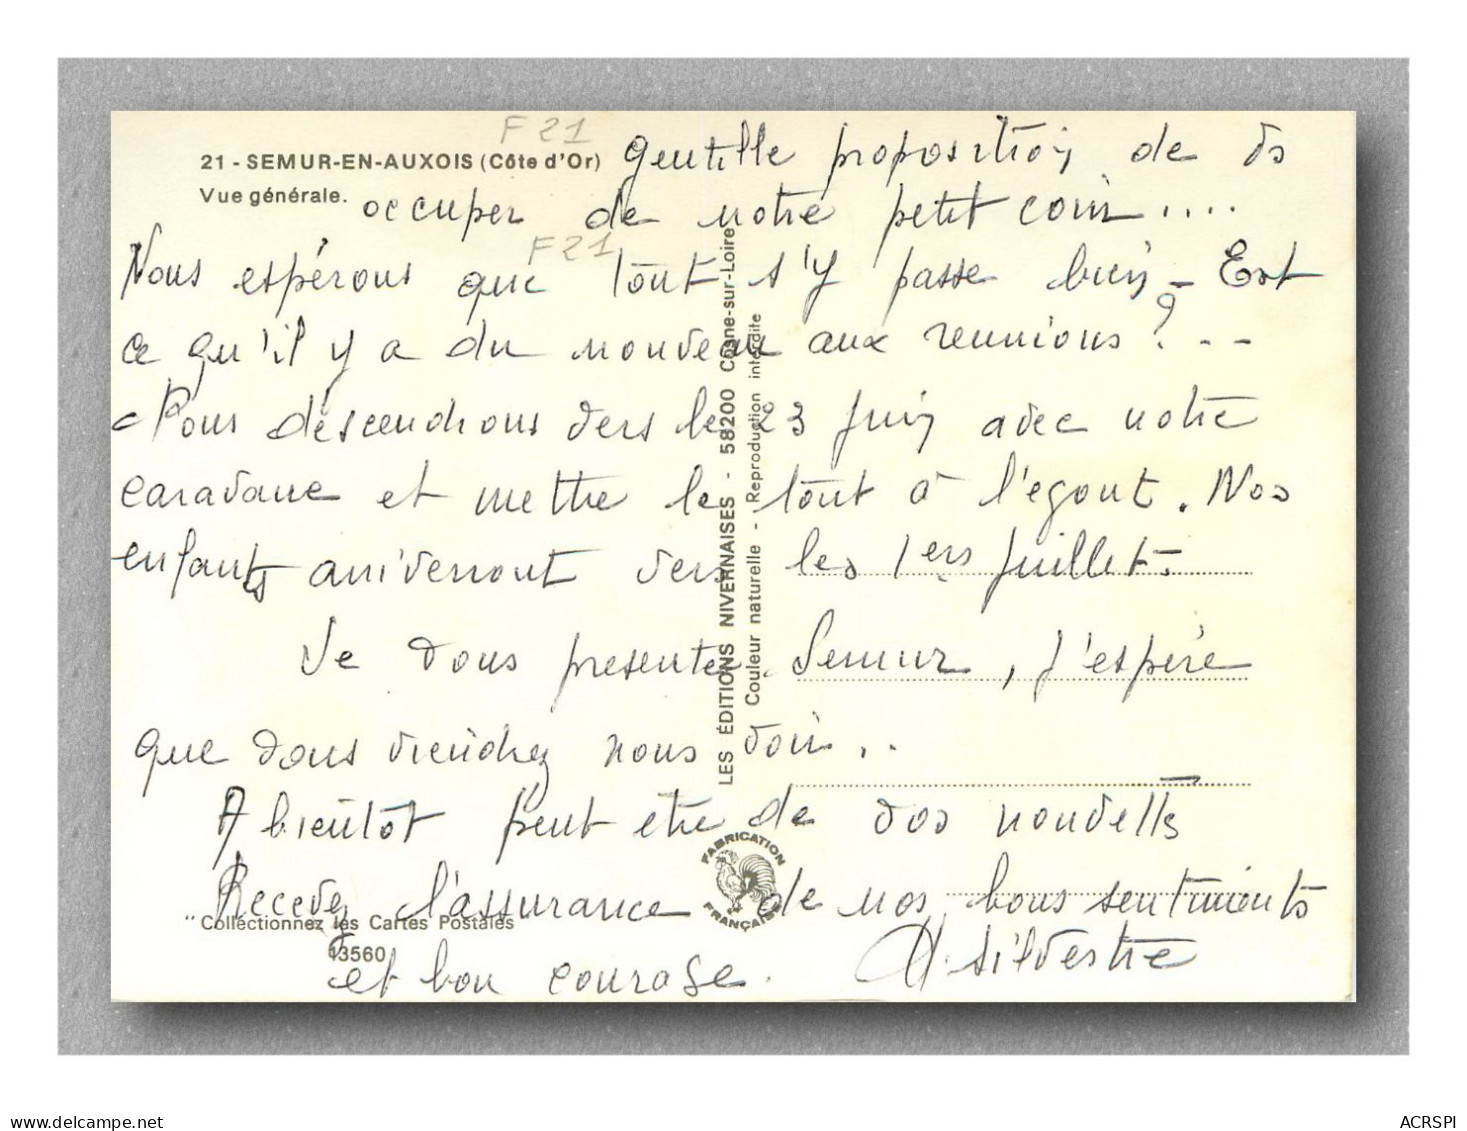 F 21
21 - SEMUR-EN-AUXOIS (Côte d'Or)
Vue générale.
gentille proposition de vs
occuper de notre petit coin....
F 21
Nous espérons que tout s'y passe bien - Est
ce qu'il y a du nouveau aux reunions ? --
Nous descendrons vers le 23 Juin avec notre
caravane et mettre le tout à l'égout. Nos
enfants arriverront vers les 1ers Juillet.
Je vous presente Semur, j'espère
que vous viendrez nous voir..
A bientôt peut etre de vos nouvelles
Recevez l'assurance de nos bons sentiments
et bon courage. H. Silvestre
LES ÉDITIONS NIVERNAISES - 58200 Cosne-sur-Loire
Couleur naturelle - Reproduction interdite
FABRICATION FRANÇAISE
"Collectionnez les Cartes Postales"
13560
delcampe.net
ACRSPI